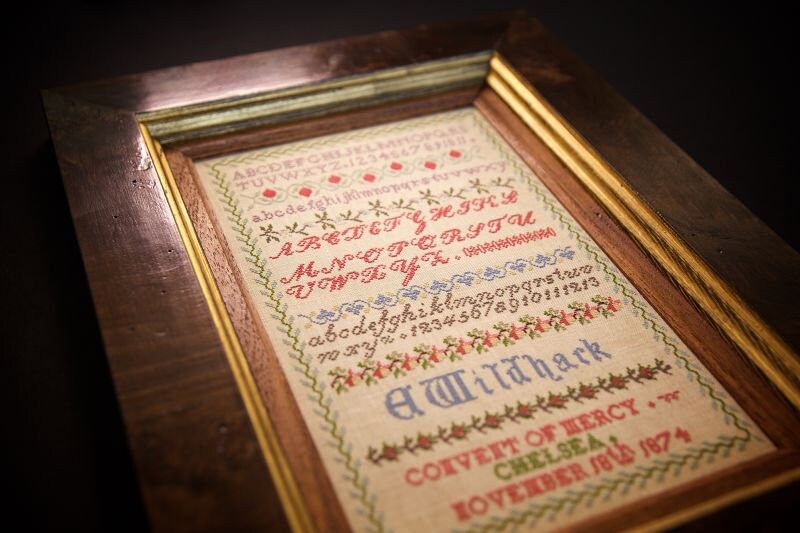 ABCDEFGHIJKLMNOPQRS
TUVWXYZ.123456789
abcdefghijklmnopqrstuvwxyz
ABCDEFGHIKL
MNOPQRSTU
VWXYZ.
abcdefghiklmnopqrstuv
wxyz.12345678910111213
A Wildhack
CONVENT OF MERCY
CHELSEA.
NOVEMBER 18th 1874